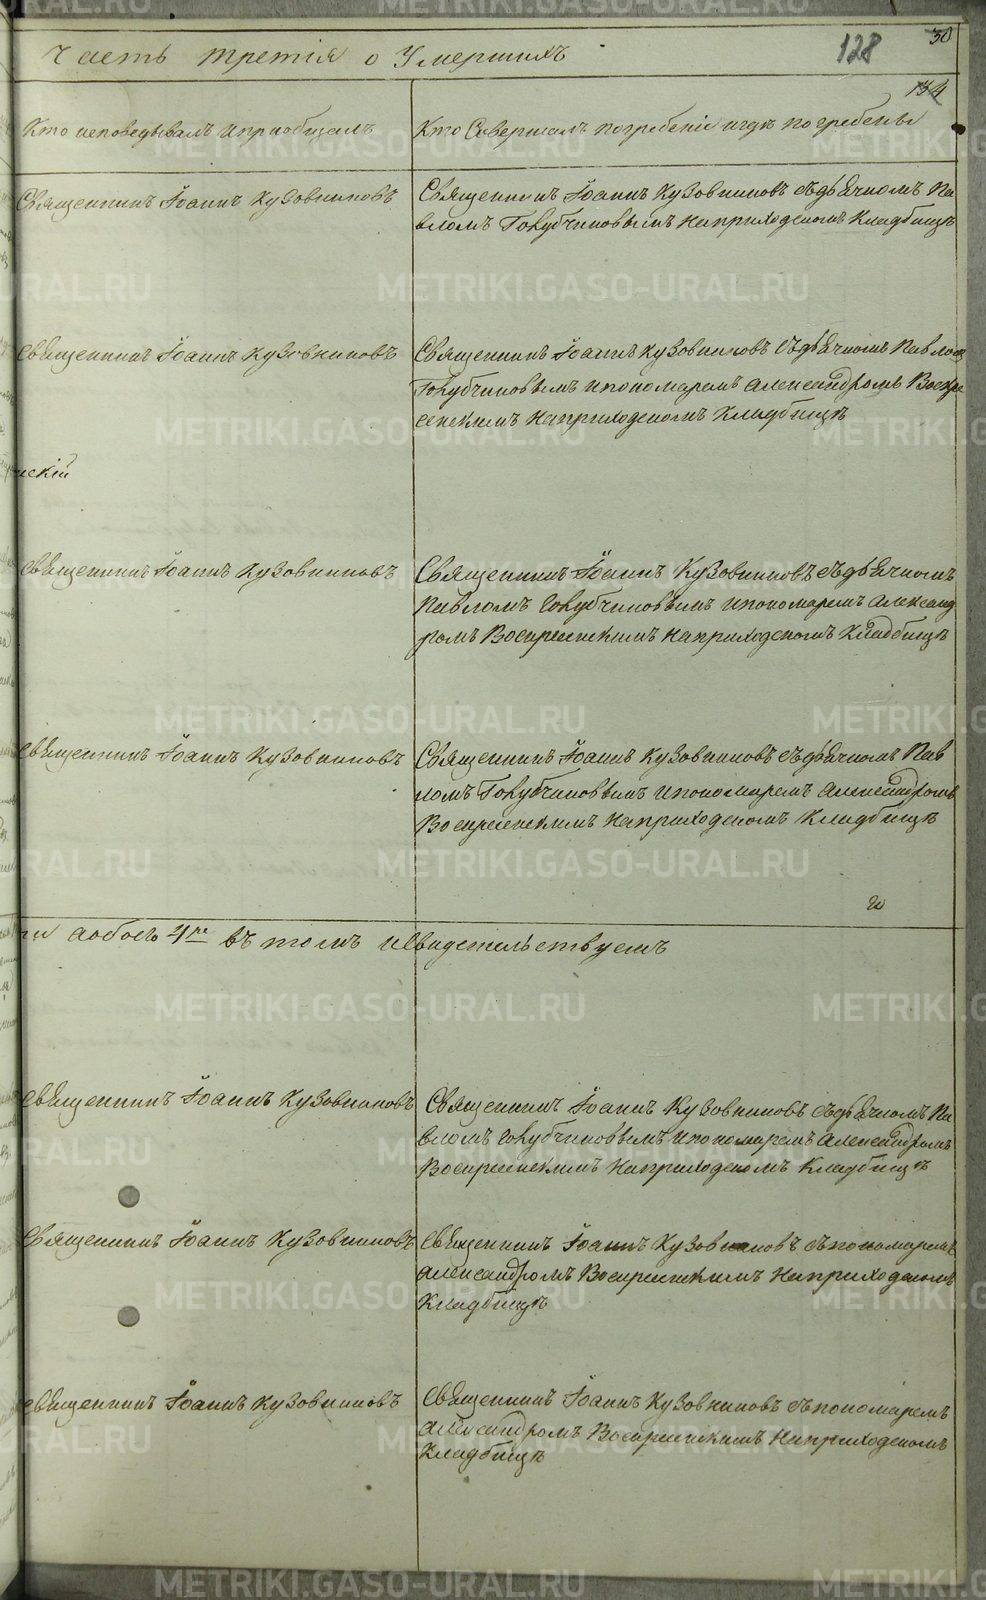 Часть третія о Умершихъ
128
30
134
Кто исповедывалъ и приобщалъ
Кто Совершалъ погребеніе и гдѣ погребены
Священникъ Іоаннъ Кузовниковъ
Священникъ Іоаннъ Кузовниковъ съ дьячкомъ Па
вломъ Голубчиковымъ на приходскомъ Кладбищѣ
Священникъ Іоаннъ Кузовниковъ
Священникъ Іоаннъ Кузовниковъ съ дьячкомъ Павломъ
Голубчиковымъ и пономаремъ Александромъ Воскре
сенскимъ на приходскомъ Кладбищѣ
нскій
Священникъ Іоаннъ Кузовниковъ
Священникъ Іоаннъ Кузовниковъ съ дьячкомъ
Павломъ Голубчиковымъ и пономаремъ Александ
ромъ Воскресенскимъ на приходскомъ Кладбищѣ
Священникъ Іоаннъ Кузовниковъ
Священникъ Іоаннъ Кузовниковъ съ дьячкомъ Пав
ломъ Голубчиковымъ и пономаремъ Александромъ
Воскресенскимъ на приходскомъ Кладбищѣ
и
а обоего 4ре въ томъ и свидетельствуемъ
Священникъ Іоаннъ Кузовниковъ
Священникъ Іоаннъ Кузовниковъ съ дьячкомъ Па
вломъ Голубчиковымъ и пономаремъ Александромъ
Воскресенскимъ на приходскомъ Кладбищѣ
Священникъ Іоаннъ Кузовниковъ
Священникъ Іоаннъ Кузовниковъ съ пономаремъ
Александромъ Воскресенскимъ на приходскомъ
Кладбищѣ
Священникъ Іоаннъ Кузовниковъ
Священникъ Іоаннъ Кузовниковъ съ пономаремъ
Александромъ Воскресенскимъ на приходскомъ
Кладбищѣ
METRIKI.GASO-URAL.RU